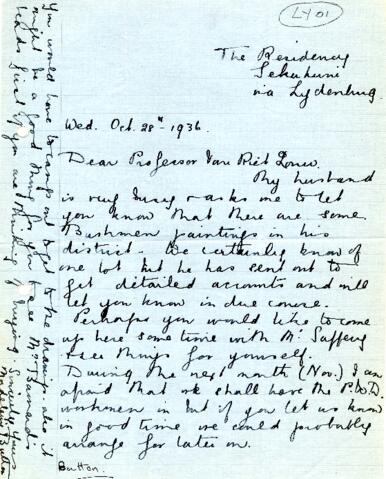 LY 01
The Residency
Sekukuni
via Lydenburg.
Wed. Oct. 28th - 1936.
Dear Professor Van Riet Lowe.
My husband
is very busy & asks me to let
you know that there are some
Bushmen paintings in his
district. We certainly know of
one lot but he has sent out to
get detailed accounts and will
let you know in due course.
Perhaps you would like to come
up here some time with Mr
& see things for yourself.
During the next month (Nov.) I am
afraid that we shall have the P.W.D.
workmen in but if you let us know
in good time we could probably
arrange for later on.
You would have to camp out to get to the drawings also it
might be a good thing for you to see Mrs
beads first if you are thinking of buying. Sincerely yours
Button
Button.